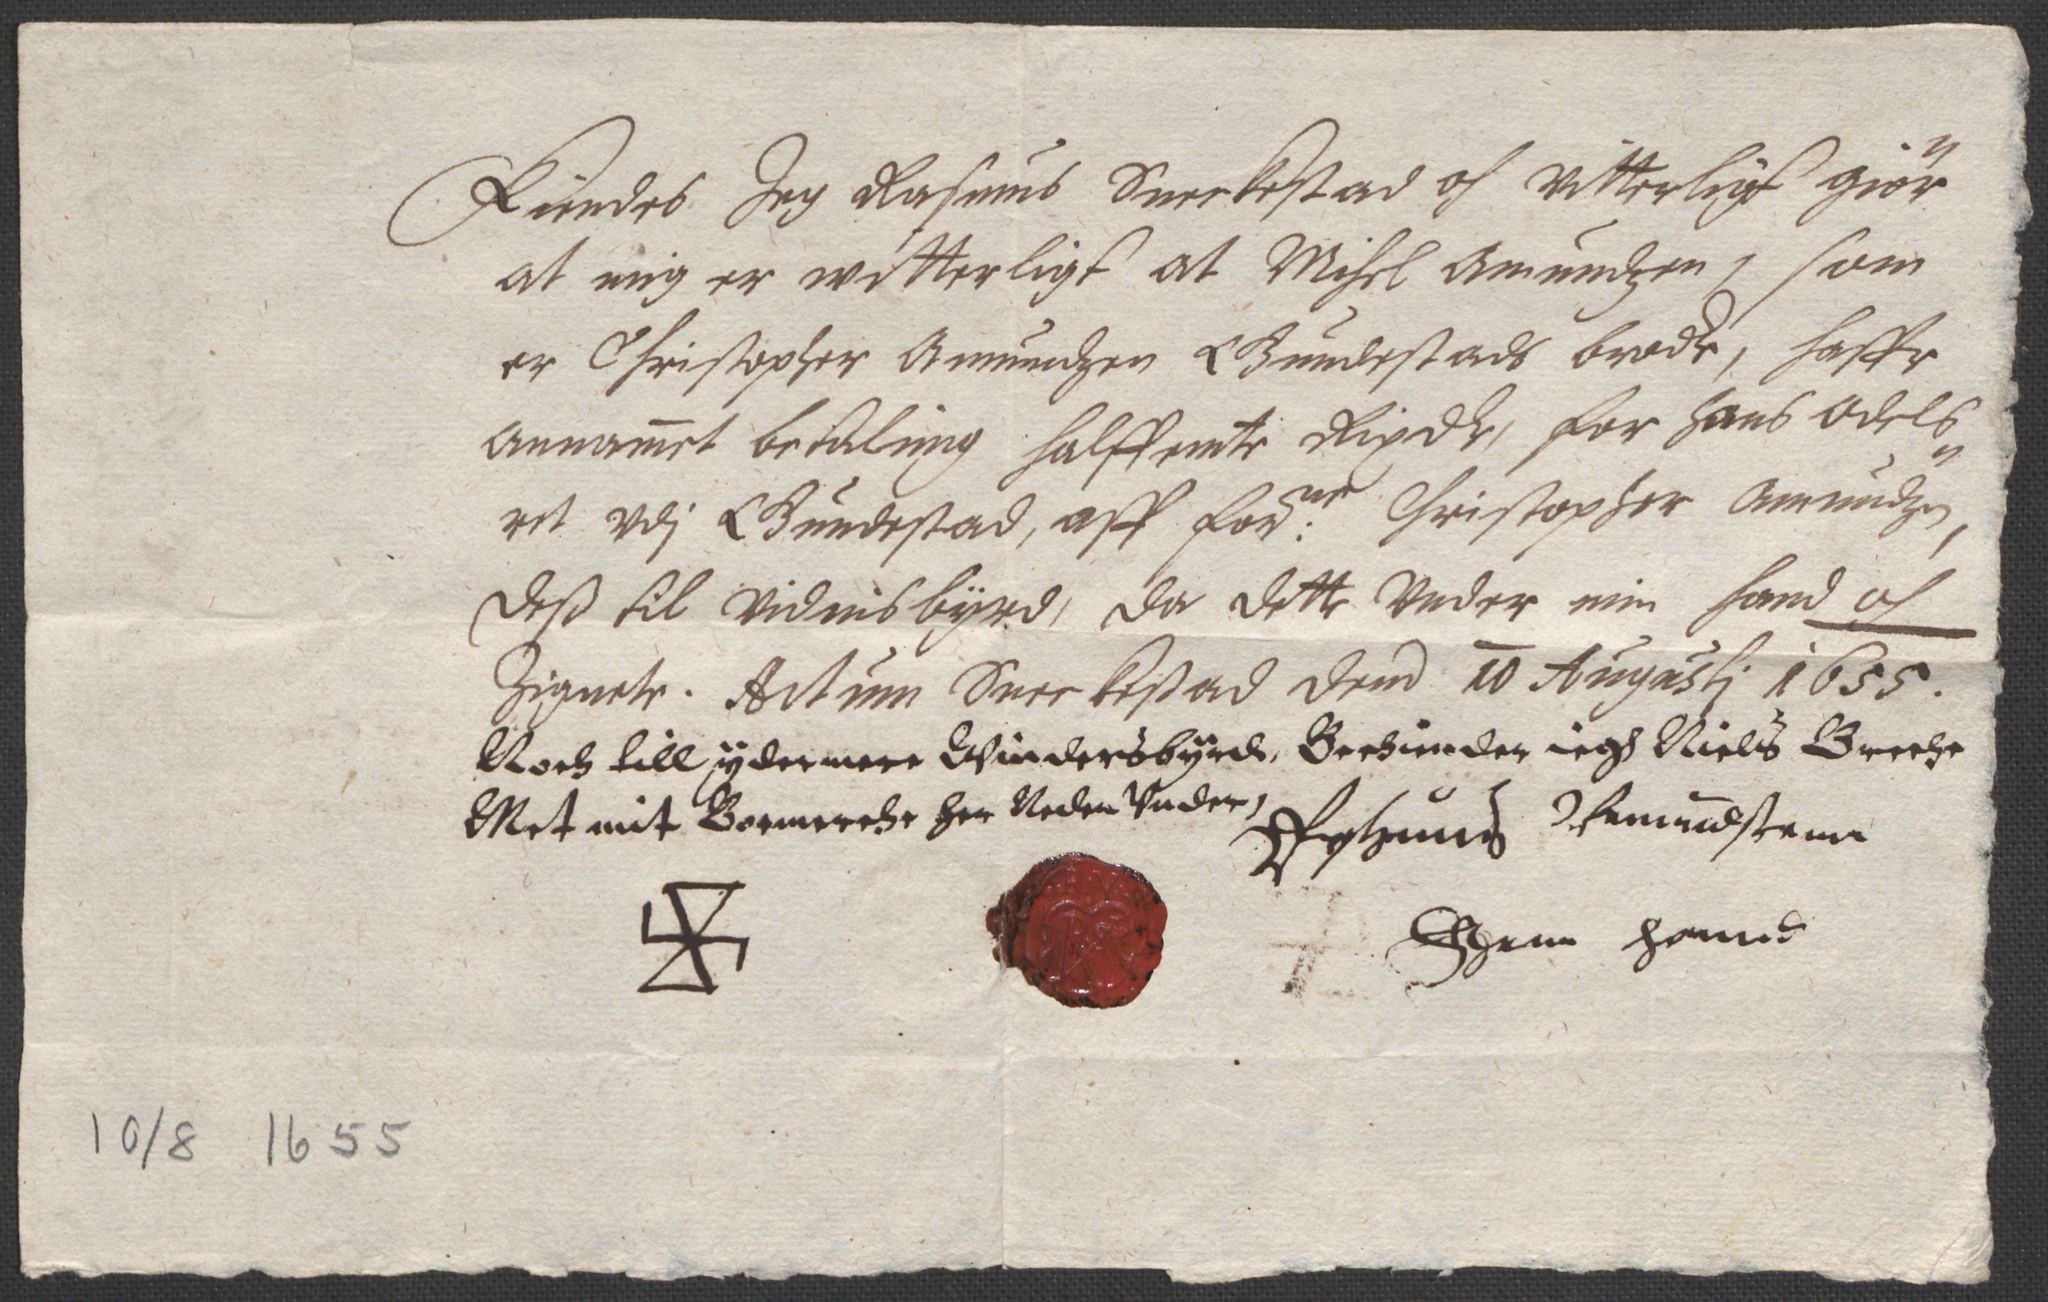 Kiendes Jeg Rasmus Sneckestad och vitterligt giör
at mig er witterligt at Michel Amundzen, som
er Christopher Amundzen Gundestads broder, haffr
annammet betaling halffemte Rixdlr, for hans odels
ret vdj Gundestad, aff for:ne Christopher Amundzen,
Dess til vidnisbyrd, da dette Vnder min hand och
Zignete. Actum Sneckestad dend 10 Augustj 1655.
Noch till ydermere Windersbyrd, Beckiender iegh Niels Brecke
Met mit Bomercke her Neden Vnder,
Rasmus
Egenn hannd
10/8 1655